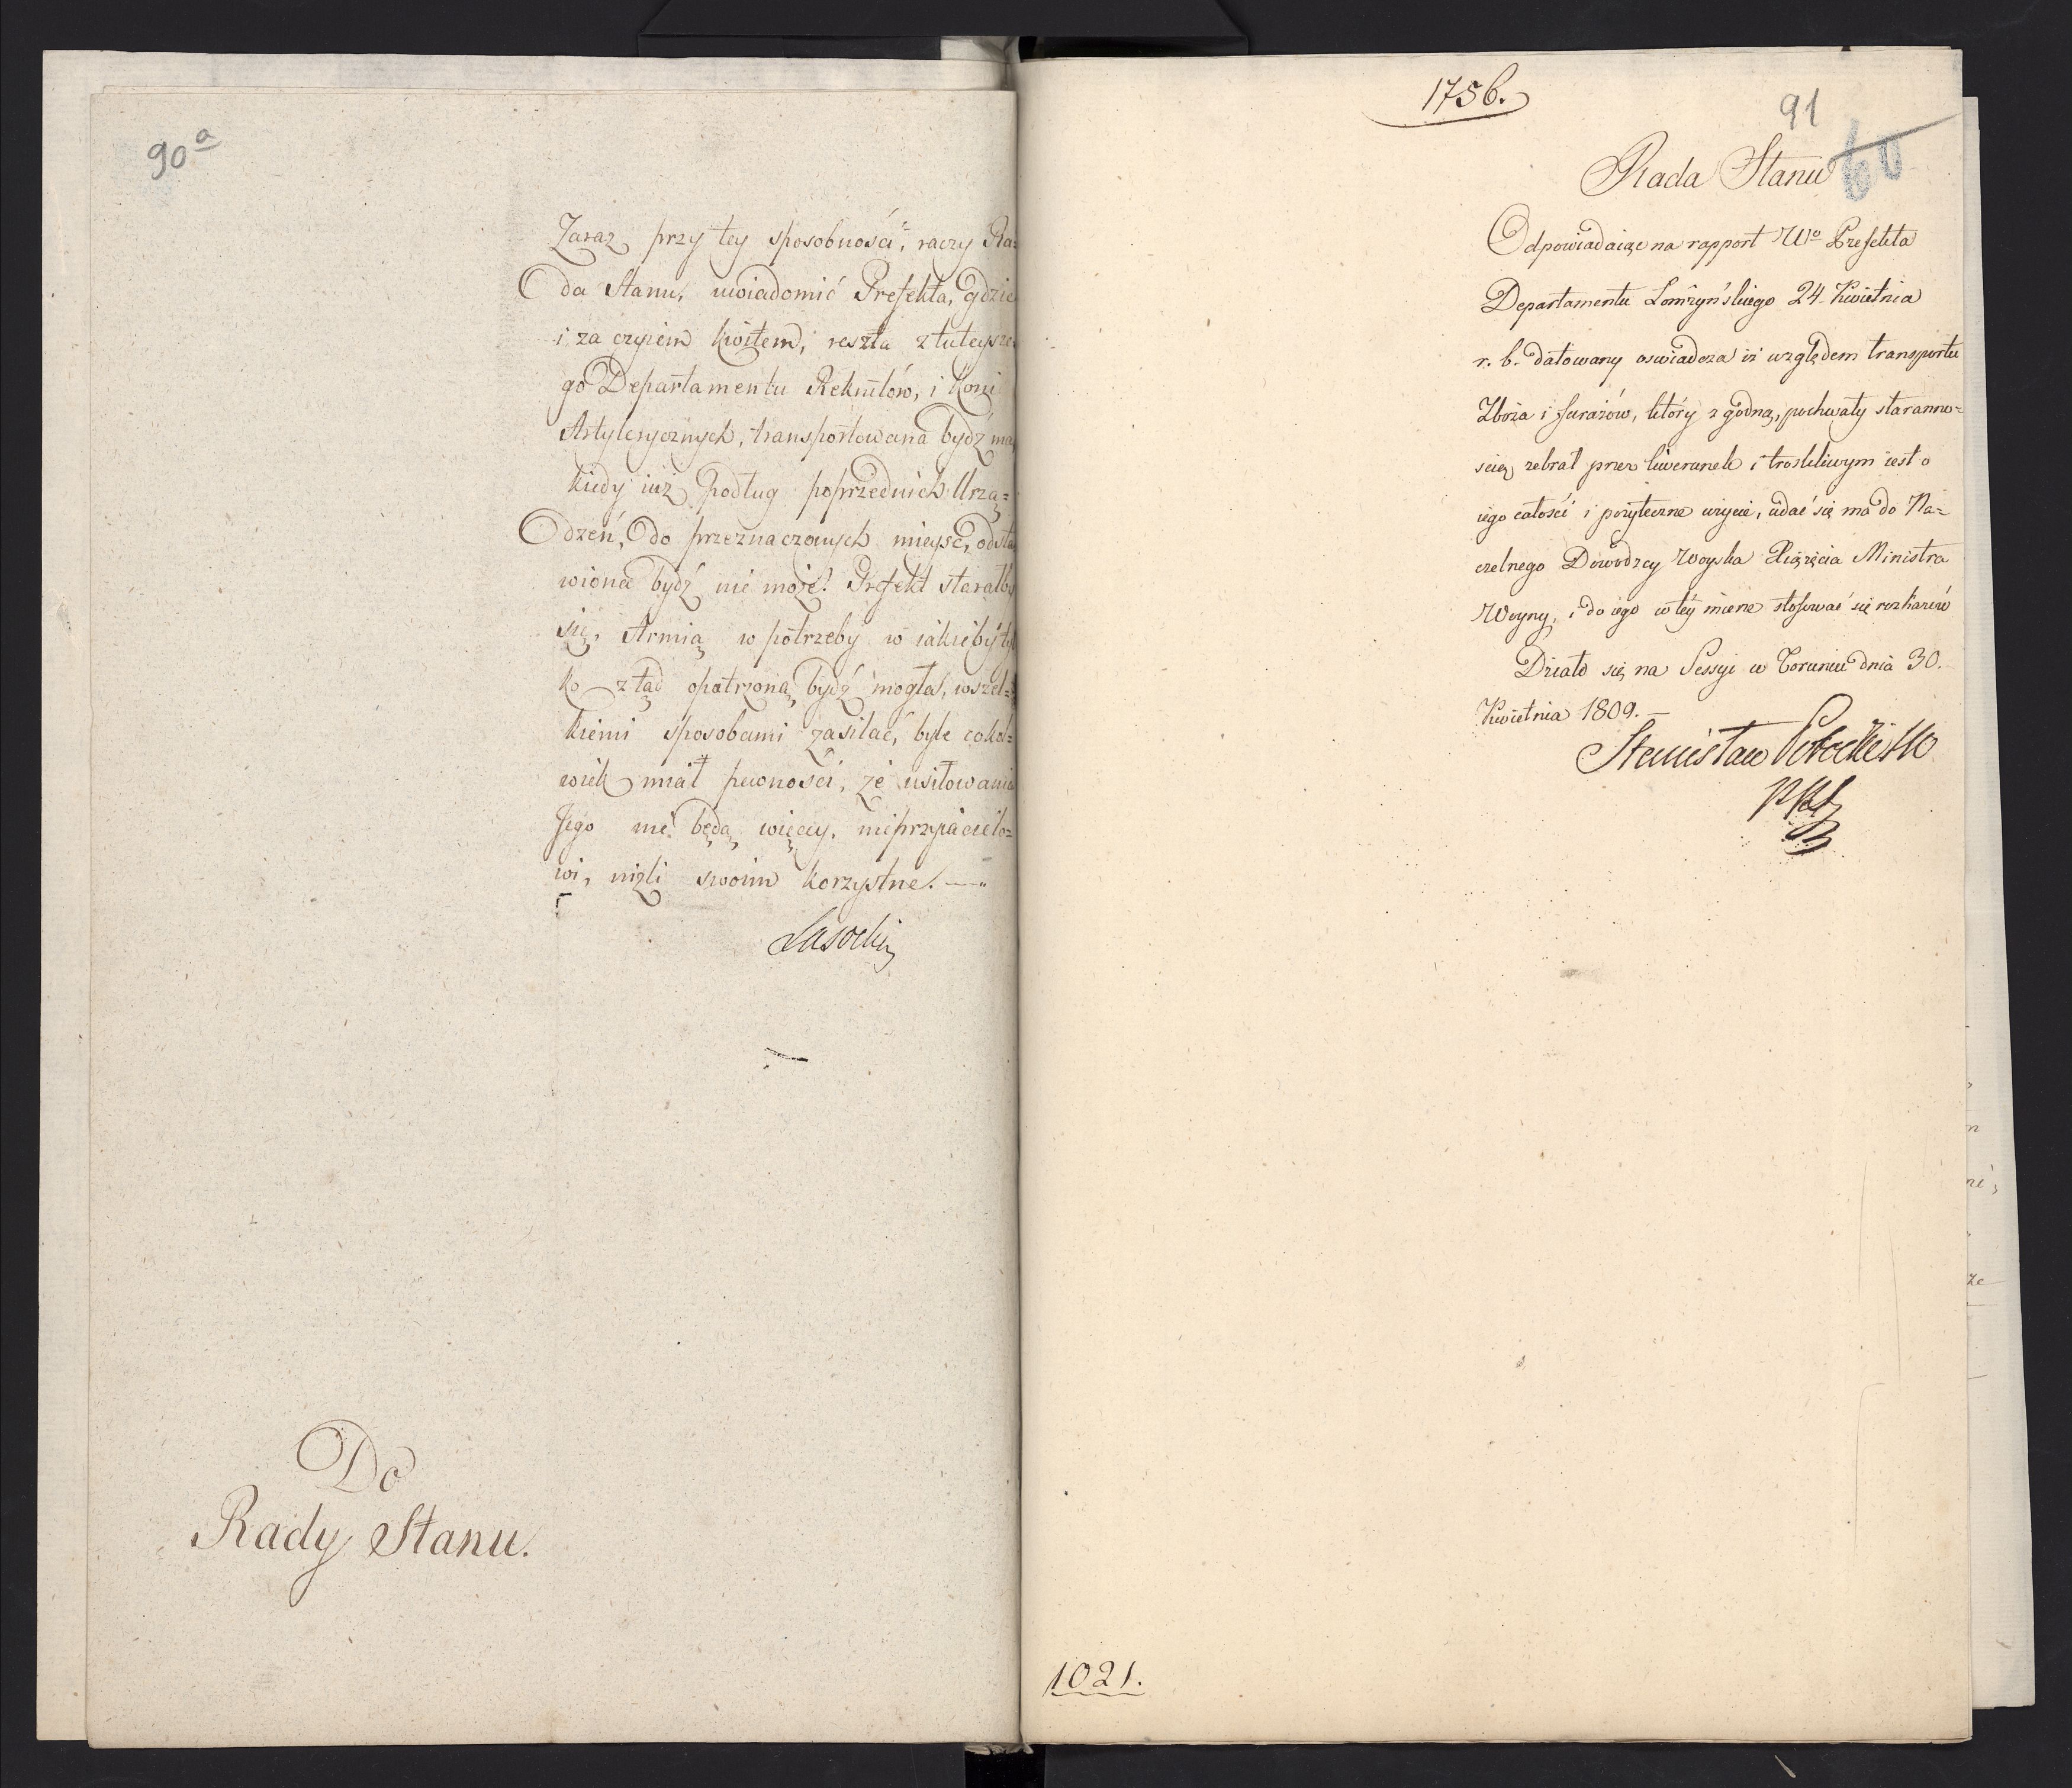 90a
Zaraz przy tey sposobności, raczy Ra=
da Stanu, uwiadomić Prefekta, gdzie
i za czyiem kwitem, reszta z tuteysze=
go Departamentu Rekrutów, i koni
Artylerycznych, transportowana bydź ma,
kiedy iuż podług poprzednich Urzą=
dzeń, do przeznaczonych mieysc, odsta
wiona bydź nie może? Prefekt starałby
się, Armią w potrzeby w iakieby tyl
ko ztąd opatrzoną bydź mogła, wszel=
kiemi sposobami zasilać, byle cokol=
wiek miał pewności, że usiłowania
Jego nie będą więcey, nieprzyiacielo=
wi, niżli swoim korzystne. —
Lasocki
Do
Rady Stanu.
1756.
91
60
Rada Stanu
Odpowiadaiąc na rapport Wo Prefekta
Departamentu Łomżyńskiego 24. Kwietnia
r. b. datowany oswiadcza iż względem transportu
Zboża i furażów, który z godną pochwały staranno=
scią zebrał przez liwerunek i troskliwym iest o
iego całości i pożyteczne użycie, udać się ma do Na=
czelnego Dowódzcy Woyska Xiążęcia Ministra
Woyny, i do iego w téy mierze stosować się rozkazów
Działo się na Sessyi w Toruniu dnia 30.
Kwietnia 1809. —
Stanisław Potocki
1021.